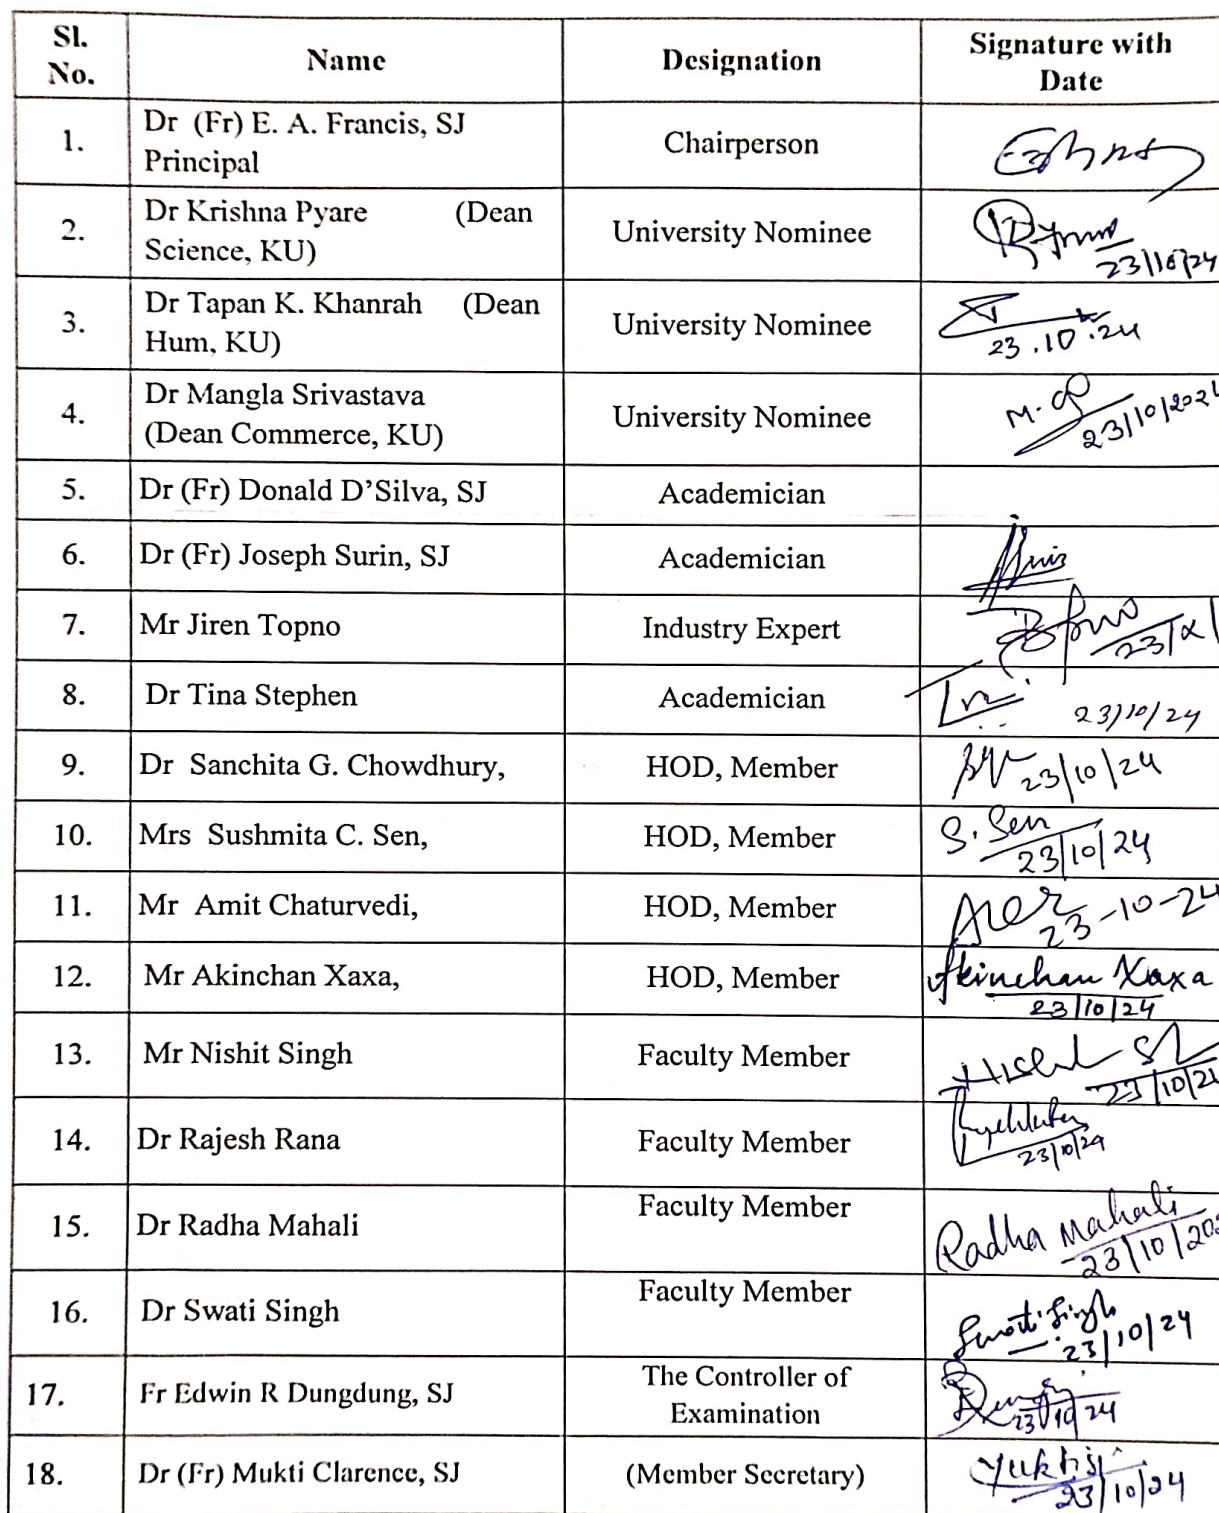 Sl. No.
Name
Designation
Signature with Date
1.
Dr (Fr) E. A. Francis, SJ
Principal
Chairperson
2.
Dr Krishna Pyare (Dean
Science, KU)
University Nominee
23/10/24
3.
Dr Tapan K. Khanrah (Dean
Hum, KU)
University Nominee
23.10.24
4.
Dr Mangla Srivastava
(Dean Commerce, KU)
University Nominee
23/10/202
5.
Dr (Fr) Donald D’Silva, SJ
Academician
6.
Dr (Fr) Joseph Surin, SJ
Academician
7.
Mr Jiren Topno
Industry Expert
8.
Dr Tina Stephen
Academician
23/10/24
9.
Dr Sanchita G. Chowdhury,
HOD, Member
23/10/24
10.
Mrs Sushmita C. Sen,
HOD, Member
S. Sen
23/10/24
11.
Mr Amit Chaturvedi,
HOD, Member
23-10-24
12.
Mr Akinchan Xaxa,
HOD, Member
Akinchan Xaxa
23/10/24
13.
Mr Nishit Singh
Faculty Member
23/10/2
14.
Dr Rajesh Rana
Faculty Member
23/10/24
15.
Dr Radha Mahali
Faculty Member
Radha Mahali
23/10/202
16.
Dr Swati Singh
Faculty Member
Swati Singh
23/10/24
17.
Fr Edwin R Dungdung, SJ
The Controller of
Examination
23/10/24
18.
Dr (Fr) Mukti Clarence, SJ
(Member Secretary)
23/10/24